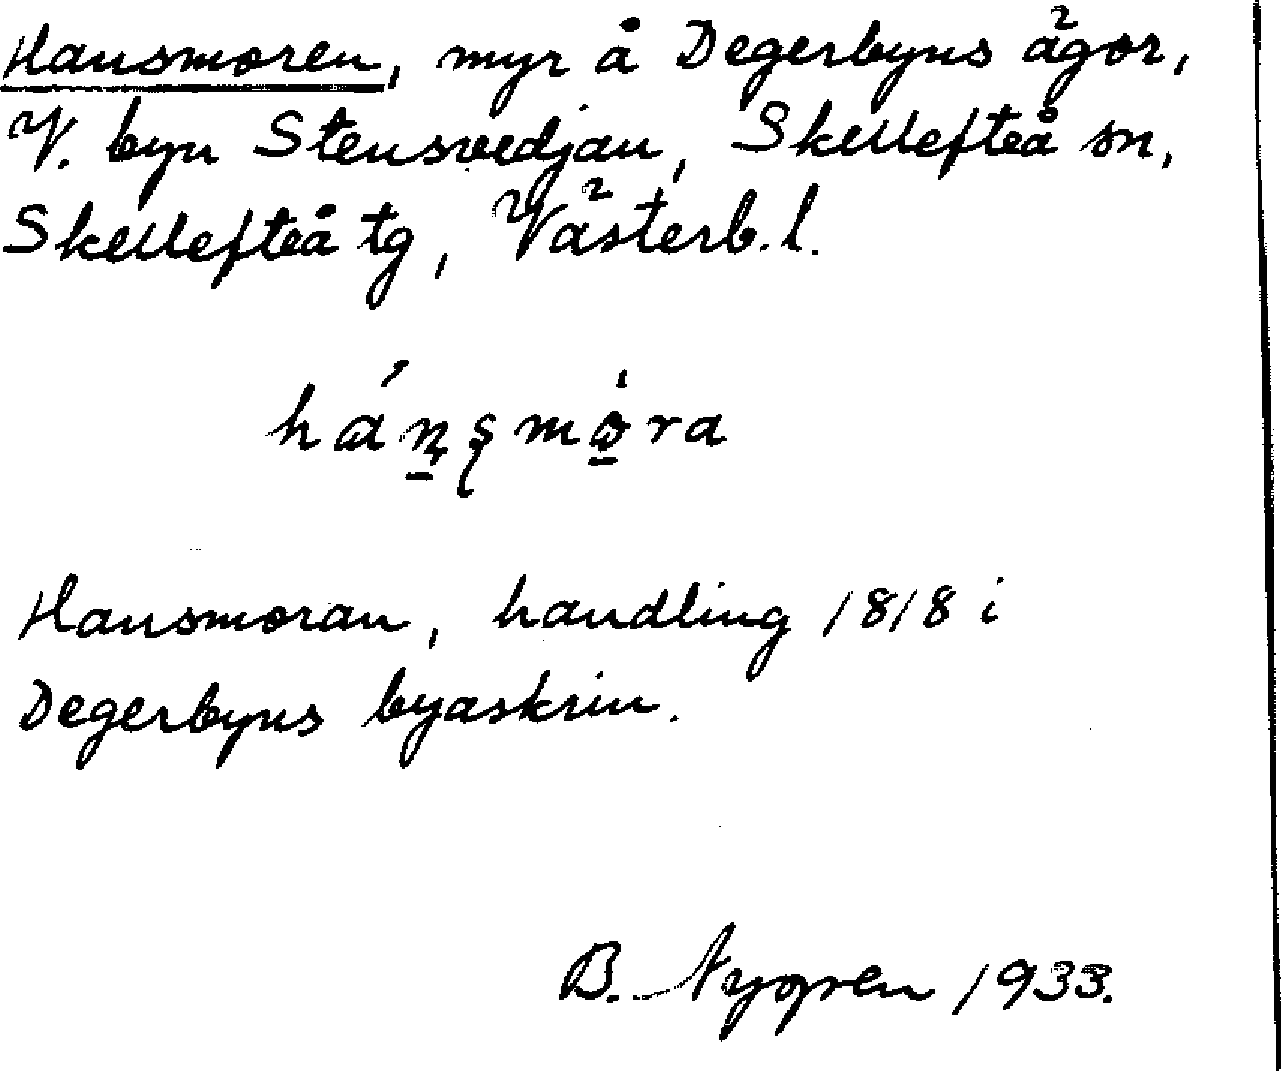 Hansmoren, myr å Degerbyns ägor,
V. byn Stensvedjan, Skellefteå sn,
Skellefteå tg, Västerb. l.
hánsmòra
Hansmoran, handling 1818 i
Degerbyns byaskrin.
B. Nygren 1933.